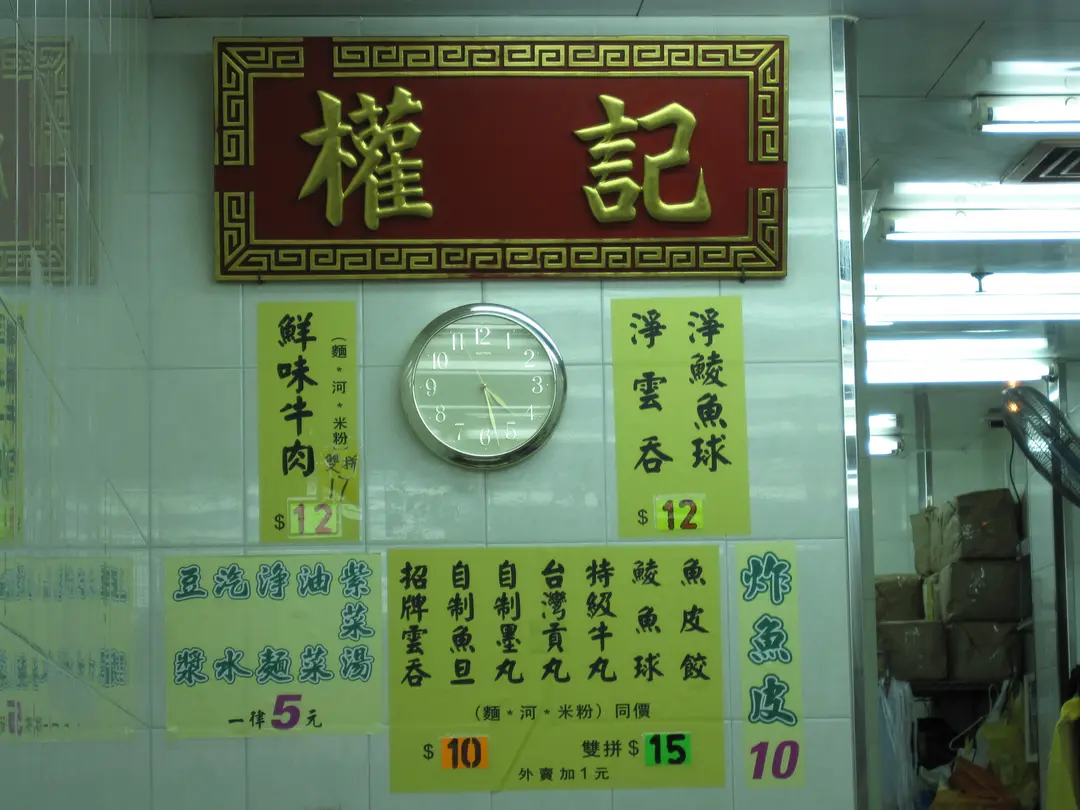 權記
鮮味牛肉
（麵*河*米粉）
雙拼
17
$12
12
1
2
3
4
5
6
7
8
9
10
11
淨鯪魚球
淨雲吞
$12
紫菜湯
油菜
淨麵
汽水
豆漿
一律5元
魚皮餃
鯪魚球
特級牛丸
台灣貢丸
自制墨丸
自制魚旦
招牌雲吞
（麵*河*米粉）同價
$10
雙拼$15
外賣加1元
炸魚皮
10